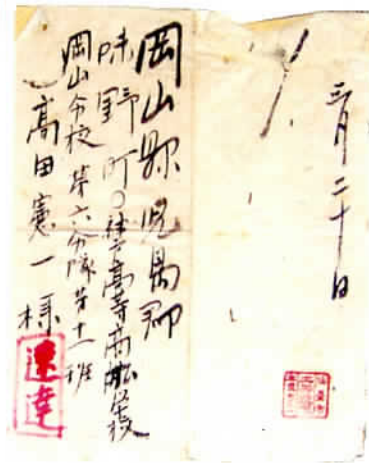 三月二十日
岡山縣児島郡
味野町〇高等商船学校
岡山分校 第六分隊第十一班
高田憲一様
速達